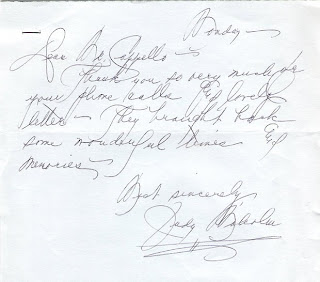 Monday —
Dear Mr. Cappello —
Thank you so very much for
your phone calls & lovely
letter — They brought back
some wonderful times &
memories —
Most sincerely
Judy